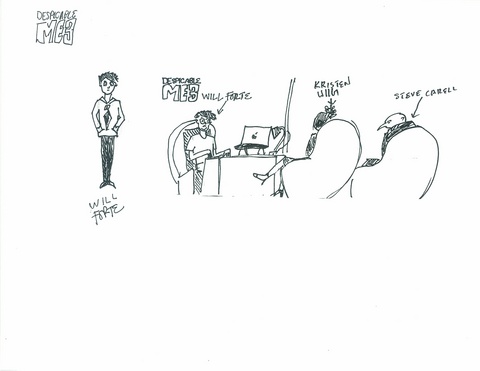 DESPICABLE
ME3
WILL
FORTE
DESPICABLE
ME3
WILL FORTE
KRISTEN
WIIG
STEVE CARELL